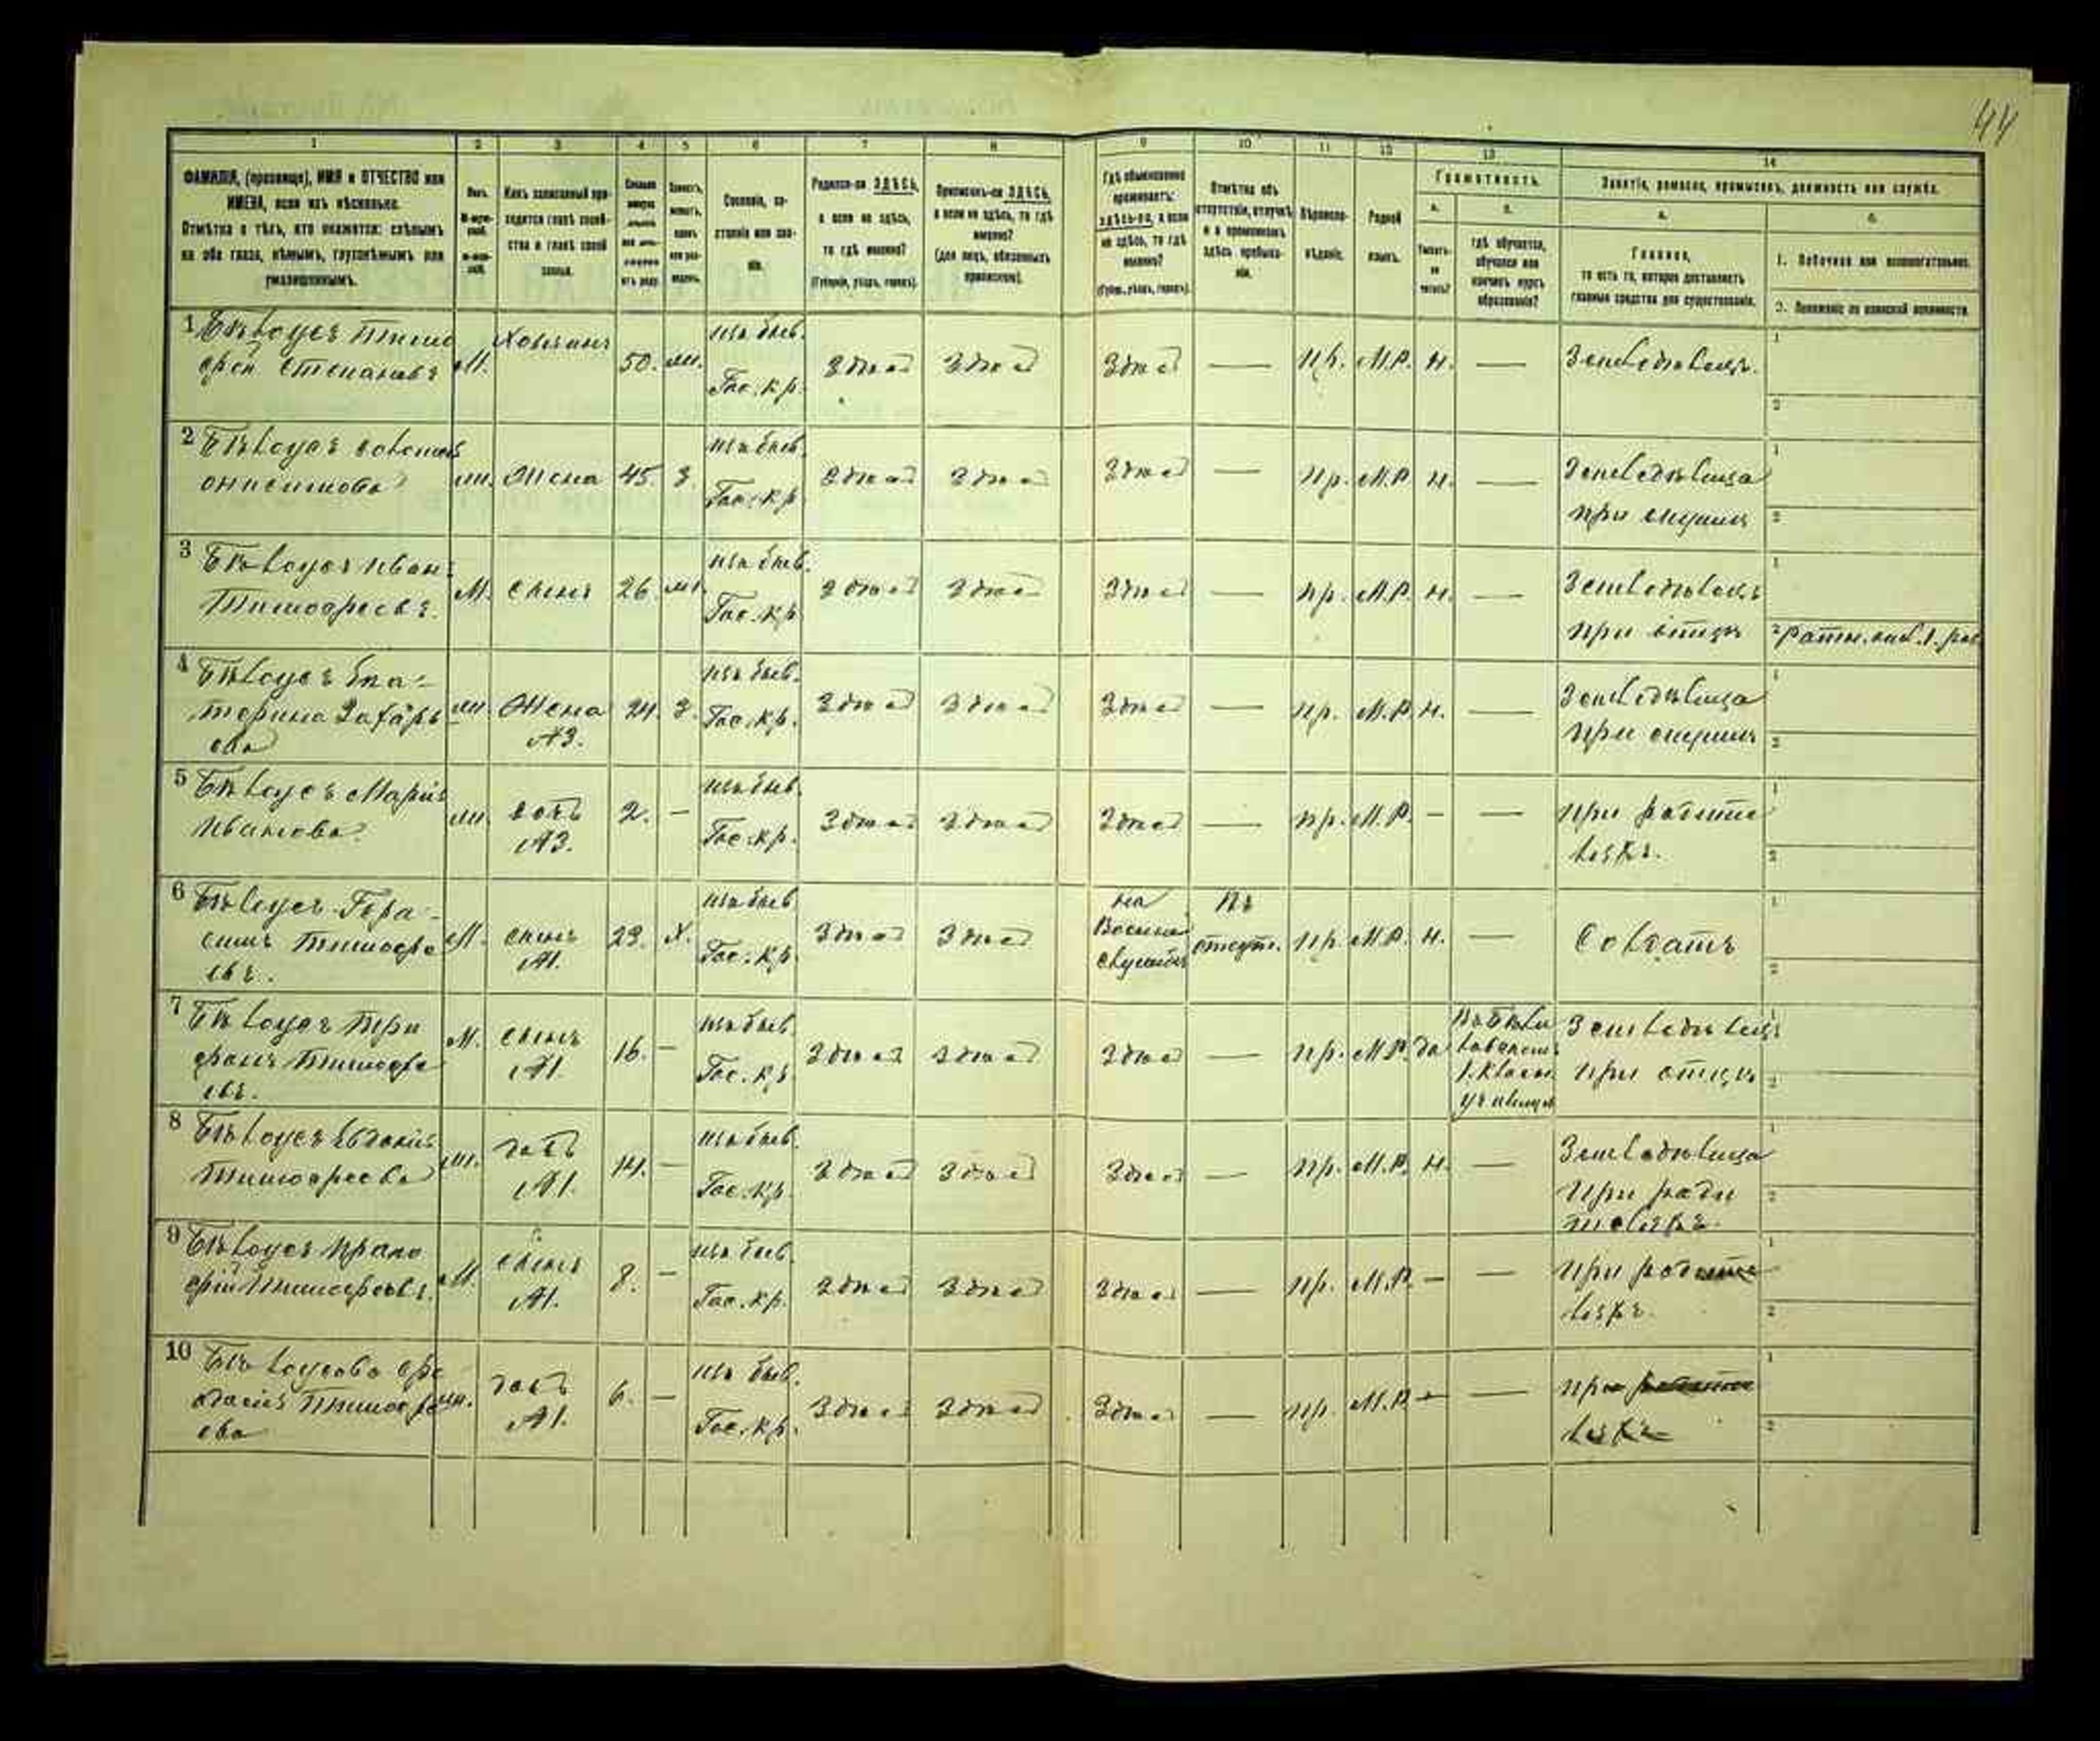 44
1 2 3 4 5 6 7 8 9 10 11 12 13 14
ФАМИЛІЯ, (прозвище), ИМЯ и ОТЧЕСТВО или
ИМЕНА, если ихъ нѣсколько.
Отмѣтка о тѣхъ, кто окажется: слѣпымъ
на оба глаза, нѣмымъ, глухонѣмымъ или
умалишеннымъ.
Полъ.
Какъ записанный при-
ходится главѣ хозяй-
ства и главѣ своей
семьи.
Сословіе, со-
стояніе или зва-
ніе.
Родился-ли ЗДѢСЬ,
а если не здѣсь,
то гдѣ именно?
(Губернія, уѣздъ, городъ).
Приписанъ-ли ЗДѢСЬ,
а если не здѣсь, то гдѣ
именно?
(для лицъ, обязанныхъ
припискою).
Гдѣ обыкновенно
проживаетъ:
здѣсь-ли, а если
не здѣсь, то гдѣ
именно?
(Губер., уѣздъ, городъ).
Отмѣтка объ
отсутствіи, отлучкѣ
и о временномъ
здѣсь пребыва-
ніи.
Вѣроиспо-
вѣданіе.
Родной
языкъ.
Грамотность.
а.
Умѣетъ-
ли
читать?
б.
гдѣ обучается,
обучался или
кончилъ курсъ
образованія?
Занятіе, ремесло, промыселъ, должность или служба.
а.
Главное,
то есть то, которое доставляетъ
главныя средства для существованія.
б.
1. Побочное или вспомогательное.
2. Положеніе по воинской повинности.
1 Бѣлоусъ Тимо
фей Степановъ
М. Хозяинъ 50. ж. изъ быв. Гос. кр. Здѣсь Здѣсь Здѣсь — Пр. М.Р. н. — Земледѣлецъ.
2 Бѣлоусъ Соломія
Онисимова
ж. Жена 45 з. изъ быв. Гос. кр. Здѣсь Здѣсь Здѣсь — пр. М.Р. н. — Земледѣлица
при мужѣ
3 Бѣлоусъ Иванъ
Тимофеевъ.
М. сынъ 26. ж. изъ быв. Гос. кр. Здѣсь Здѣсь Здѣсь — пр. М.Р. н. — Земледѣлецъ
при отцѣ
Ратн. опол. 1. раз
4 Бѣлоусъ Ека-
терина Захарь
ева
ж. Жена 24. з. изъ быв. Гос. кр. Здѣсь Здѣсь Здѣсь — пр. М.Р. н. — Земледѣлица
№3. при мужѣ
5 Бѣлоусъ Марія
Иванова
ж. дочь 2. — изъ быв. Гос. кр. Здѣсь Здѣсь Здѣсь — пр. М.Р. — — При родите
№3. ляхъ.
6 Бѣлоусъ Гера-
симъ Тимофе
евъ.
М. сынъ 23. х. изъ быв. Гос. кр. Здѣсь Здѣсь на Военной службѣ Въ отсут. пр. М.Р. н. — Солдатъ
№1.
7 Бѣлоусъ Три
фонъ Тимофе
евъ.
М. сынъ 16. — изъ быв. Гос. кр. Здѣсь Здѣсь Здѣсь — пр. М.Р. да 1. класн. училищѣ Земледѣлецъ
№1. при отцѣ
8 Бѣлоусъ Евдокія
Тимофеева
ж. дочь 14. — изъ быв. Гос. кр. Здѣсь Здѣсь Здѣсь — пр. М.Р. н. — Земледѣлица
№1. При роди
теляхъ.
9 Бѣлоусъ Проко
фій Тимофеевъ.
М. сынъ 8. — изъ быв. Гос. кр. Здѣсь Здѣсь Здѣсь — пр. М.Р. — — При родите
№1. ляхъ.
10 Бѣлоусова Фео
досія Тимофе
ева
ж. дочь 6. — изъ быв. Гос. кр. Здѣсь Здѣсь Здѣсь — пр. М.Р. — — При родите
№1. ляхъ